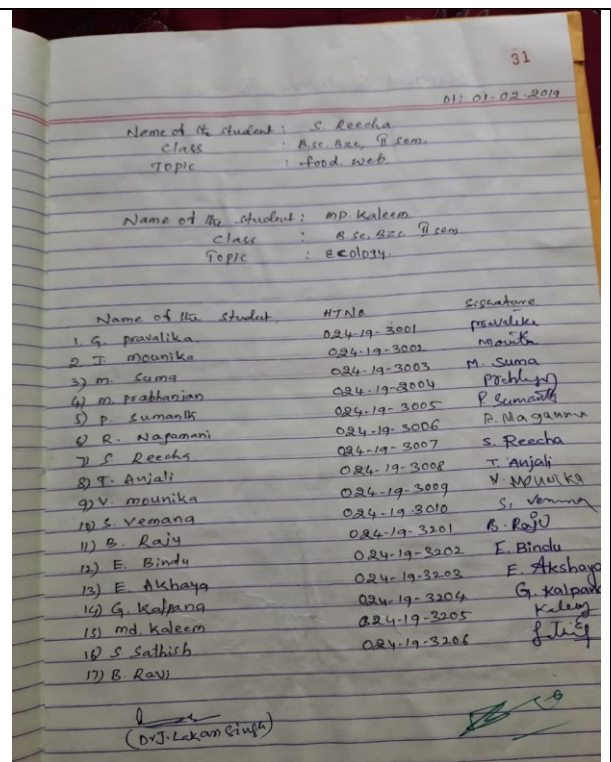 31
Dt: 01-02-2019
Name of the student : S. Reecha
Class : B.sc. Bzc, II sem.
Topic : food web
Name of the student : MD. Kaleem
Class : B.sc. BZC. II sem
Topic : Ecology.
Name of the student HTNo Signature
1. G. pravalika 024-19-3001 pravalika
2 T. mounika 024-19-3002 Mounika
3) m. suma 024-19-3003 M. Suma
4) m. prabhanjan 024-19-3004
5) p. sumanth 024-19-3005 P. Sumanth
6) R. Nagamani 024-19-3006 R. Nagamani
7) S Reecha 024-19-3007 S. Reecha
8) T. Anjali 024-19-3008 T. Anjali
9) V. mounika 024-19-3009 V. Mounika
10) S. vemana 024-19-3010 S, vemana
11) B. Raju 024-19-3201 B. Raju
12) E. Bindu 024-19-3202 E. Bindu
13) E. Akhaya 024-19-3203 E. Akshaya
14) G. Kalpana 024-19-3204 G. Kalpana
15) md. Kaleem 024-19-3205 Kaleem
16) S Sathish 024-19-3206
17) B. Ravi
(Dr J. Lakan Singh)